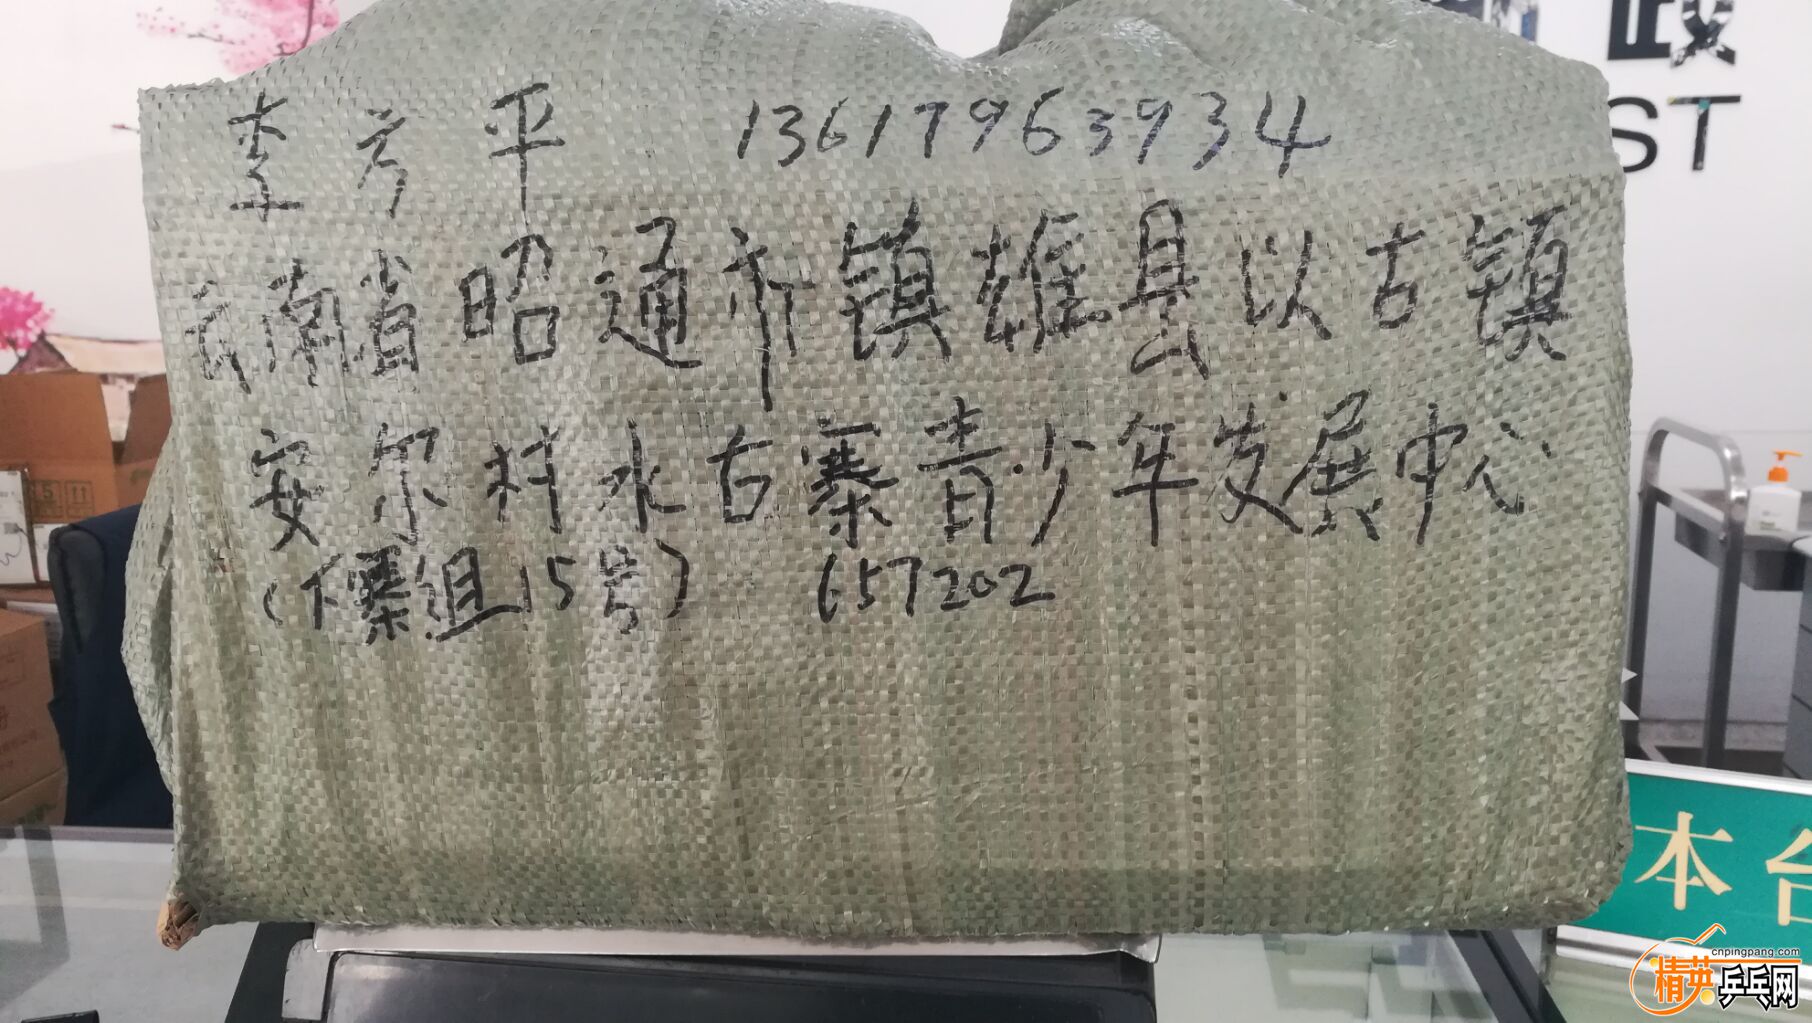 李芳平 13617963934
云南省昭通市镇雄县以古镇
安尔村水古寨青少年发展中心
(下寨组15号) 657202
政
ST
本台
cnpingpang.com
精英乒乓网